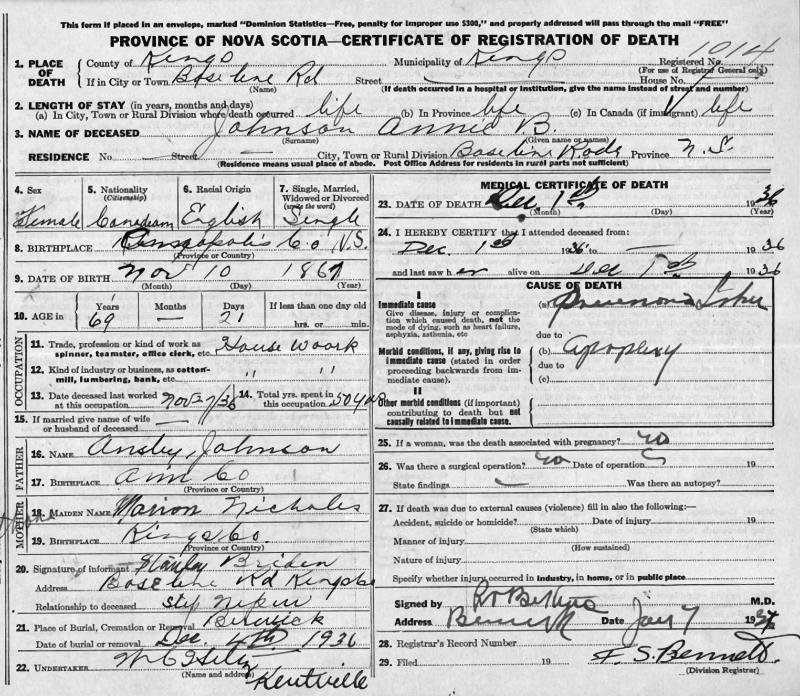 This form if placed in an envelope, marked "Dominion Statistics—Free, penalty for improper use $300," and properly addressed will pass through the mail "FREE"
PROVINCE OF NOVA SCOTIA—CERTIFICATE OF REGISTRATION OF DEATH
1. PLACE OF DEATH County of Kings Municipality of Kings Registered No. 1014
(For use of Registrar General only)
If in City or Town Baseline Rd Street House No.
(Name) (If death occurred in a hospital or institution, give the name instead of street and number)
2. LENGTH OF STAY (in years, months and days)
(a) In City, Town or Rural Division where death occurred life (b) In Province life (c) In Canada (if immigrant) life
3. NAME OF DECEASED Johnson Annie B.
(Surname) (Given name or names)
RESIDENCE No. — Street — City, Town or Rural Division Baseline Rode Province N.S.
(Residence means usual place of abode. Post Office Address for residents in rural parts not sufficient)
4. Sex Female
5. Nationality (Citizenship) Canadian
6. Racial Origin English
7. Single, Married, Widowed or Divorced (write the word) Single
8. BIRTHPLACE Annapolis Co N.S.
(Province or Country)
9. DATE OF BIRTH Nov 10 1867
(Month) (Day) (Year)
10. AGE in Years Months Days If less than one day old
69 — 21 hrs. or min.
OCCUPATION
11. Trade, profession or kind of work as spinner, teamster, office clerk, etc. House Woork
12. Kind of industry or business, as cotton-mill, lumbering, bank, etc. " "
13. Date deceased last worked at this occupation Nov 27/36
14. Total yrs. spent in this occupation 50 yrs
15. If married give name of wife or husband of deceased —
FATHER
16. NAME Ansby Johnson
17. BIRTHPLACE Ann Co
(Province or Country)
MOTHER
18. MAIDEN NAME Marion Nicholes
19. BIRTHPLACE Kings Co.
(Province or Country)
20. Signature of informant Stanley Briden
Address Baseline Rd Kings Co
Relationship to deceased step
21. Place of Burial, Cremation or Removal Berwick
Date of burial or removal Dec. 4th 1936
22. UNDERTAKER
(Name and address) Kentville
MEDICAL CERTIFICATE OF DEATH
23. DATE OF DEATH Dec 1st 1936
(Month) (Day) (Year)
24. I HEREBY CERTIFY that I attended deceased from:
Dec. 1st 1936 to 1936
and last saw her alive on Dec 1st 1936
CAUSE OF DEATH
I
Immediate cause
Give disease, injury or complication which caused death, not the mode of dying, such as heart failure, asphyxia, asthenia, etc
(a)
due to
Morbid conditions, if any, giving rise to immediate cause (stated in order proceeding backwards from immediate cause).
(b) apoplexy
due to
(c)
II
Other morbid conditions (if important) contributing to death but not causally related to immediate cause.
25. If a woman, was the death associated with pregnancy? no
26. Was there a surgical operation? no Date of operation 19
State findings Was there an autopsy?
27. If death was due to external causes (violence) fill in also the following:—
Accident, suicide or homicide? Date of injury 19
(State which)
Manner of injury
(How sustained)
Nature of injury
Specify whether injury occurred in industry, in home, or in public place
Signed by M.D.
Address Berwick Date Jan 7 1937
28. Registrar's Record Number
29. Filed 19 F. S. Bennett.
(Division Registrar)